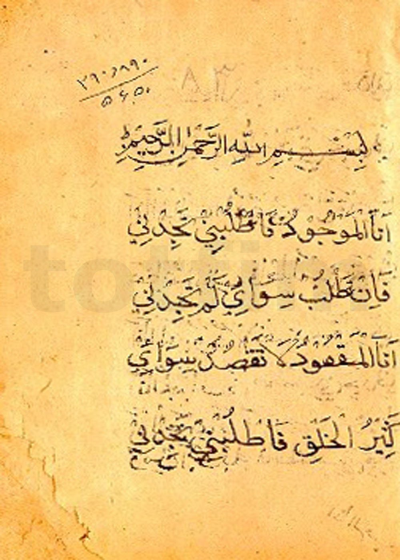 بِسْمِ اللهِ الرَّحْمٰنِ الرَّحِيمِ
اَنَا الْمَوْجُودُ فَاطْلُبْنِي تَجِدْنِي
فَاِنْ تَطْلُبْ سِوَايَ لَمْ تَجِدْنِي
اَنَا الْمَقْصُودُ لَا تَقْصُدْ سِوَايَ
كَثِيرُ الْخَلْقِ فَاطْلُبْنِي تَجِدْنِي